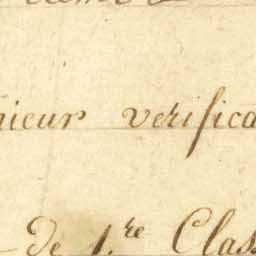 nieur verifica
de 1.re Class